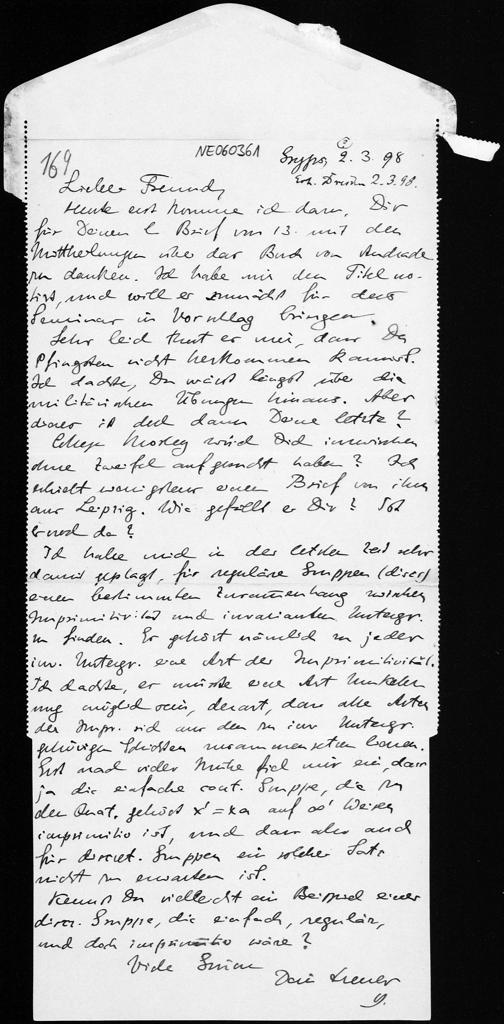 169
NE060361
Gryps, 2. 3. 98
Erh. Dresden 2.3.98.
Lieber Freund,
Heute erst komme ich dazu, Dir
für Deinen l. Brief vom 13. mit den
Mittheilungen über das Buch von Andrade
zu danken. Ich habe mir den Titel no-
tirt, und will es zunächst für das
Seminar in Vorschlag bringen.
Sehr leid thut es mir, dass Du
Pfingsten nicht herkommen kannst.
Ich dachte, Du wärst längst über die
militärischen Übungen hinaus. Aber
dieses ist doch dann Deine letzte?
College Morley wird Dich inzwischen
ohne Zweifel aufgesucht haben? Ich
erhielt wenigstens einen Brief von ihm
aus Leipzig. Wie gefällt er Dir? Ist
er noch da?
Ich habe mich in der letzten Zeit sehr
damit geplagt, für reguläre Gruppen (discr)
einen bestimmten Zusammenhang zwischen
Imprimitivität und invarianten Untergr.
zu finden. Es gehört nämlich zu jeder
inv. Untergr. eine Art der Imprimitivität.
Ich dachte, es müsste eine Art Umkehr
ung möglich sein, derart, dass alle Arten
der Impr. sich aus den zu inv Untergr.
gehörigen zusammensetzen lassen.
Erst nach vieler Mühe fiel mir ein, dass
ja die einfache cont. Gruppe, die zu
den Quat. gehört x' = xa auf ∞' Weisen
imprimitiv ist, und dass also auch
für discret. Gruppen ein solcher Satz
nicht zu erwarten ist.
Kennst Du vielleicht ein Beispiel einer
discr. Gruppe, die einfach, regulär,
und doch imprimitiv wäre?
Viele Grüsse
Dein treuer